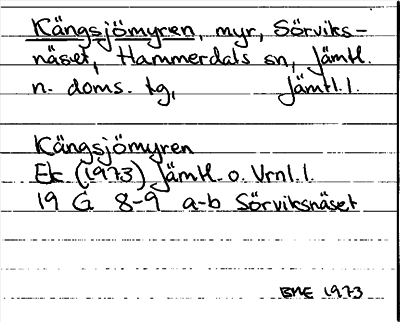 Kängsjömyren, myr, Sörviks-
näset, Hammerdals sn, Jämtl.
n. doms. tg, Jämtl.l.
Kängsjömyren
Ek (1973) Jämtl. o. Vrnl. l.
19 G 8-9 a-b Sörviksnäset
BME 1973